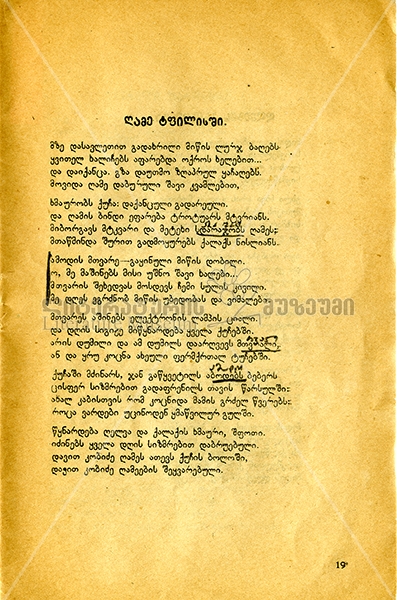 ღამე ტფილისში.
მზე დასავლეთით გადახრილი მიწის ლურჯ ბაღებს
ყვითელ ხალიჩებს აფარებდა ოქროს ხელებით...
და დაიქანცა. გზა დაუთმო ზღაპრულ ყაჩაღებს.
მოვიდა ღამე დაბურული შავი კვამლებით,
ხმაურობს ქუჩა: დაქანცული გადარეული.
და ღამის ბინდი ეფარება ტროტუარს მტვრიანს.
მიბორგავს მტკვარი და მეტეხი სდარაჯობს ღამეს:
მთაწმინდა შურით გადმოყურებს ქალაქს ნისლიანს.
ამოდის მთვარე—გაყინული მიწის დობილი.
ო, მე მაშინებს მისი უშნო შავი ხალები...
მთვარის შეხედვას მოსდევს ჩემი სულის კივილი.
მე დღეს ვგრძნობ მიწის უბედობას და ვიმალები
მთვარეს აშინებს ელექტრონის ლამპის ციალი.
და დღის სიგიჟე მიწყნარდება ყველა ქუჩებში.
არის დუმილი და ამ დუმილს დაარღვევს
ან და ყრუ კოცნა ახეული ფერმქრთალ ტუჩებში.
ქუჩაში მძინარს, ჯან გაწყვეტილს აბოდებს ბებერს
ცისფერ სიზმრებით გადაფრენილს თავის წარსულში:
ახალ კაბისთვის რომ კოცნიდა მამის გრძელ წვერებს:
როცა ვარდები უცინოდენ ყმაწვილურ გულში.
წყნარდება ღელვა და ქალაქის ხმაური, შფოთი.
იძინებს ყველა დღის სიზმრებით დაბრუებული.
დავით კობიძე ღამეს ათევს ქუჩის ბოლოში,
დავით კობიძე ღამეების შეყვარებული.
19